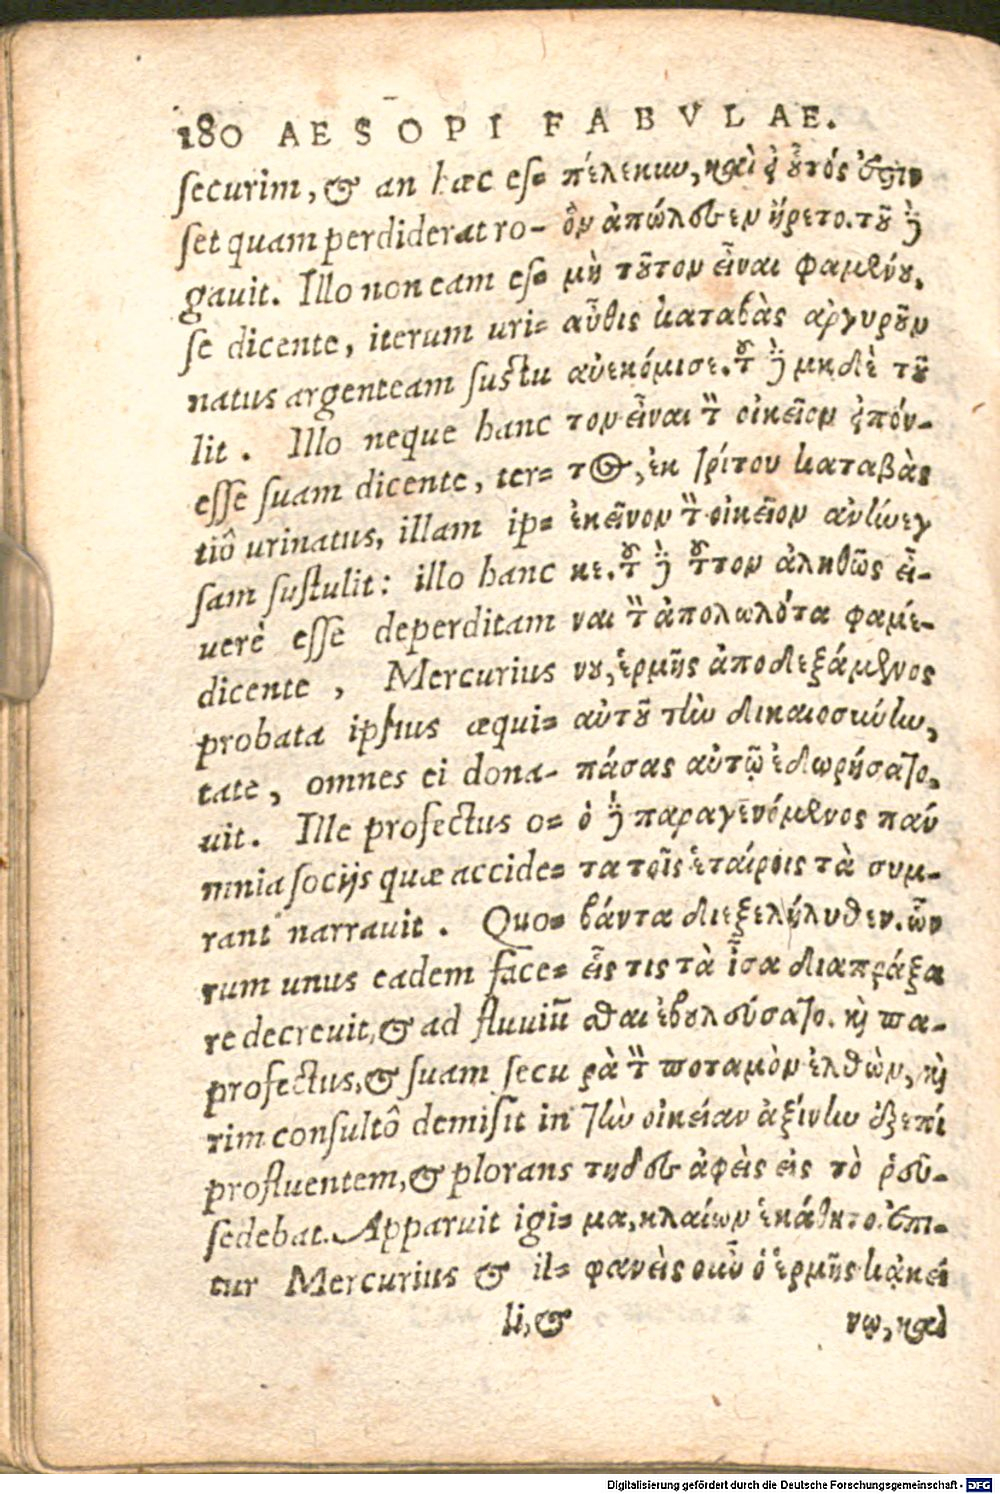 180 AESOPI FABVLAE.
securim, & an hæc es-
set quam perdiderat ro-
gauit. Illo non eam es-
se dicente, iterum uri-
natus argenteam sustu
lit. Illo neque hanc
esse suam dicente, ter-
tiô urinatus, illam ip-
sam sustulit: illo hanc
uerè esse deperditam
dicente, Mercurius
probata ipsius æqui-
tate, omnes ei dona-
uit. Ille profectus o-
mnia socijs quæ accide-
rant narrauit. Quo-
rum unus eadem face-
re decreuit, & ad fluuiū
profectus, & suam secu
rim consultô demisit in
profluentem, & plorans
sedebat. Apparuit igi-
tur Mercurius & il-
li, &
πέλεκυν, καὶ εἰ οὗτός ἐστιν
ὃν ἀπώλεσεν ἤρετο. τοῦ δὲ
μὴ τοῦτον εἶναι φαμένου,
αὖθις καταβὰς ἀργυροῦν
ἀνεκόμισε. τοῦ δὲ μηδὲ τοῦ
τον εἶναι τὸν οἰκεῖον εἰπόν-
τος, ἐκ τρίτου καταβὰς
ἐκεῖνον τὸν οἰκεῖον ἀνήνεγ
κε. τοῦ δὲ τοῦτον ἀληθῶς εἶ-
ναι τὸν ἀπολωλότα φαμέ-
νου, ἑρμῆς ἀποδεξάμενος
αὐτοῦ τὴν δικαιοσύνην,
πάσας αὐτῷ ἐδωρήσατο,
ὁ δὲ παραγενόμενος πάν
τα τοῖς ἑταίροις τὰ συμ-
βάντα διεξελήλυθεν. ὧν
εἷς τις τὰ ἶσα διαπράξα
σθαι ἐβουλεύσατο. καὶ πα-
ρὰ τὸν ποταμὸν ἐλθὼν, καὶ
τὴν οἰκείαν ἀξίνην ἐξεπί
τηδες ἀφεὶς εἰς τὸ ῥεῦ-
μα, κλαίων ἐκάθητο. ἐπι-
φανεὶς οὖν ὁ ἑρμῆς κἀκεί
νῳ, καὶ